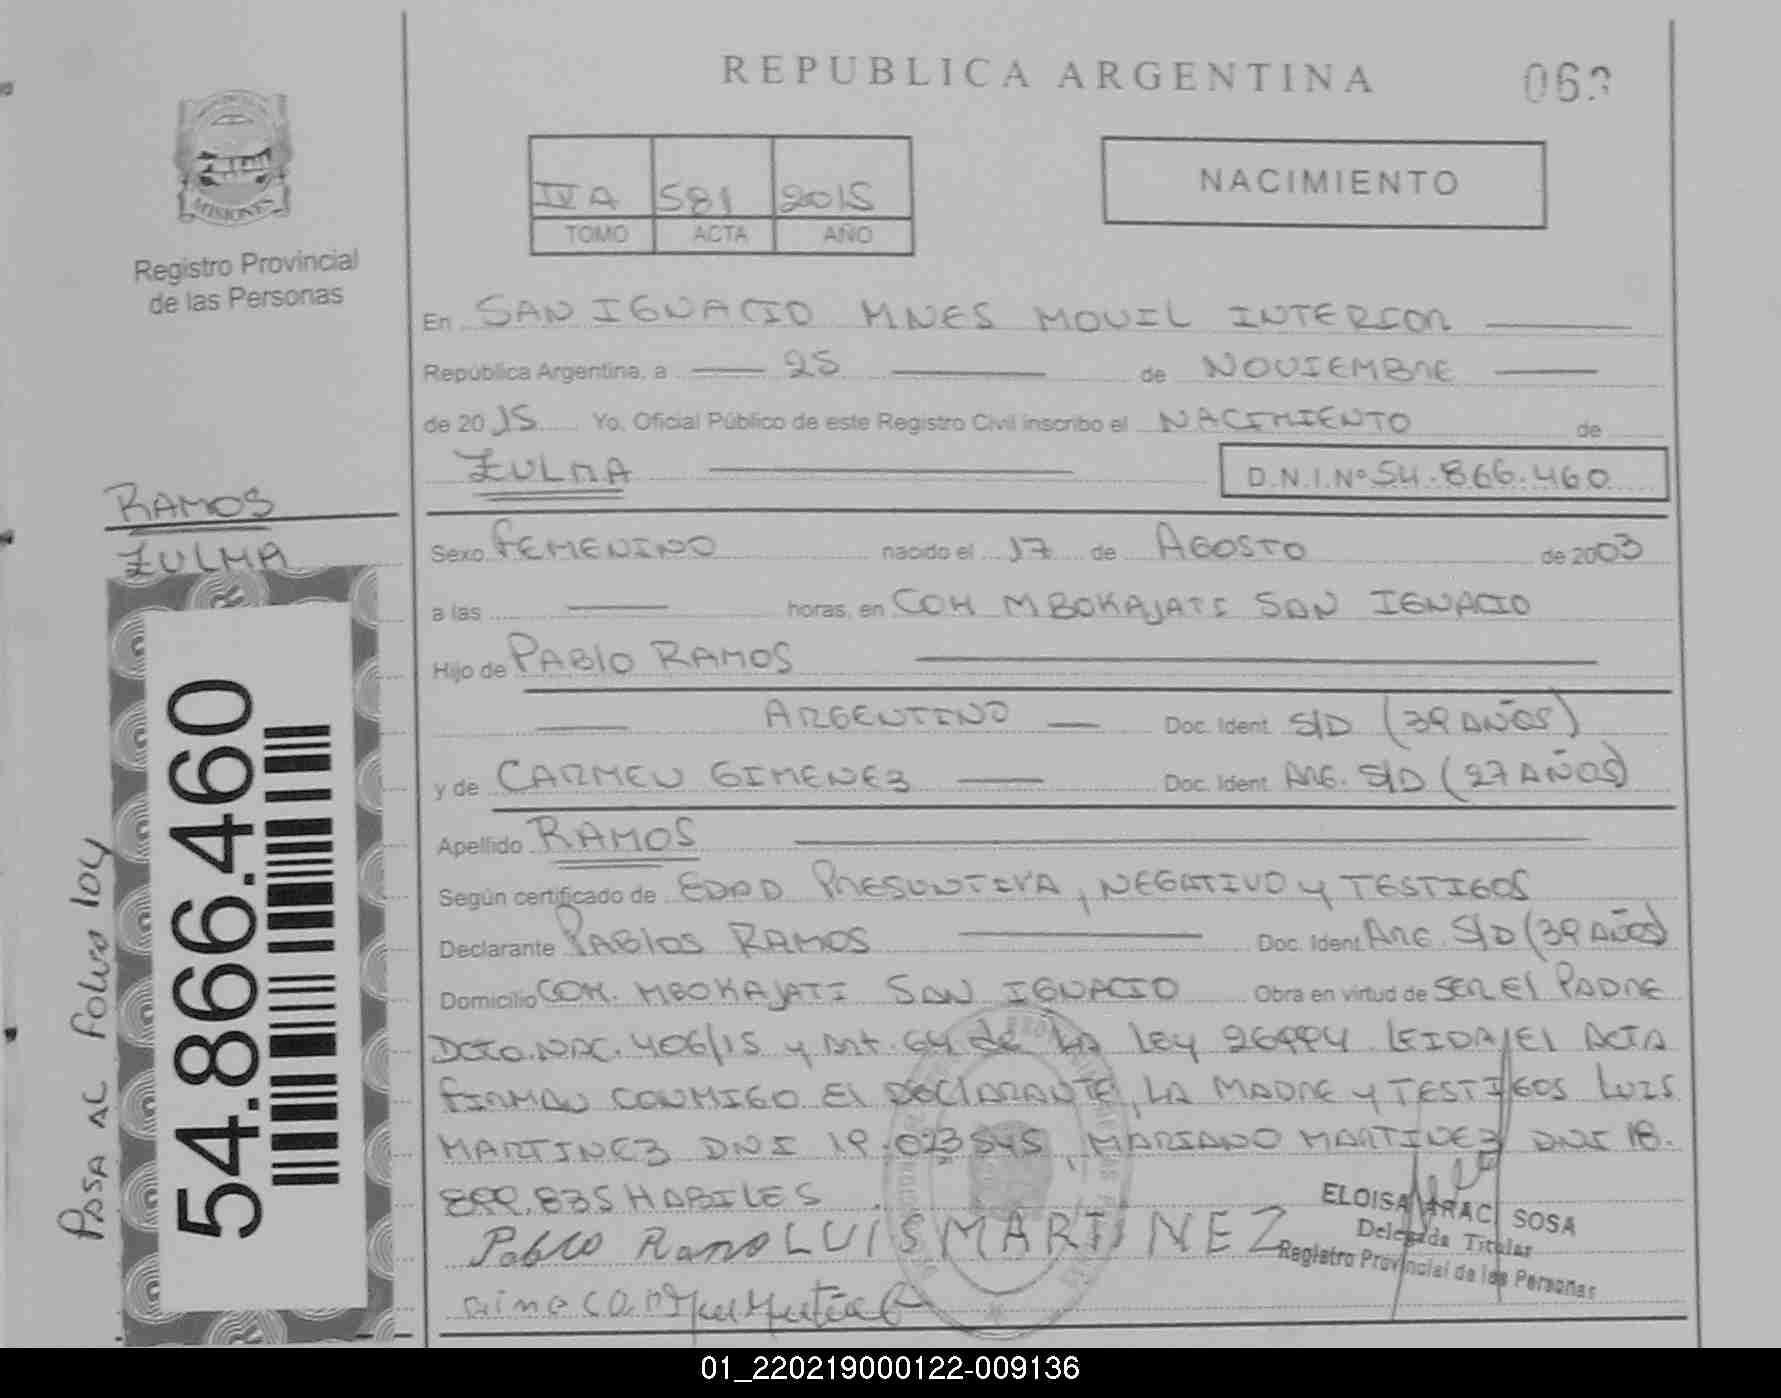 REPUBLICA ARGENTINA
063
MISIONES
Registro Provincial
de las Personas
IVA 581 2015
TOMO ACTA AÑO
NACIMIENTO
En SAN IGNACIO MNES MOVIL INTERIOR
República Argentina, a 25 de NOVIEMBRE
de 2015 Yo, Oficial Público de este Registro Civil inscribo el NACIMIENTO de
ZULMA D.N.I.Nº 54.866.460
RAMOS
ZULMA
Sexo FEMENINO nacido el 17 de AGOSTO de 2003
a las horas, en COM MBOKAJATI SAN IGNACIO
Hijo de PABLO RAMOS
ARGENTINO Doc. Ident. S/D (39 AÑOS)
y de CARMEN GIMENEZ Doc. Ident. ARG. S/D (27 AÑOS)
Apellido RAMOS
Según certificado de EDAD PRESUNTIVA, NEGATIVO y TESTIGOS
Declarante PABLOS RAMOS Doc. Ident. ARG. S/D (39 AÑOS)
Domicilio COM. MBOKAJATI SAN IGNACIO Obra en virtud de SER EL PADRE
DCTO. NAC. 406/15 y Art. 64 de LA LEY 26994 LEIDA EL ACTA
FIRMAN CONMIGO EL DECLARANTE, LA MADRE y TESTIGOS LUIS
MARTINEZ DNI 19.023545, MARIANO MARTINEZ DNI 18.
899.835 HABILES
Pablo Ramo LUIS MARTINEZ
ELOISA ARACI SOSA
Delegada Titular
Registro Provincial de las Personas
54.866.460
PASA AL Folio 104
01_220219000122-009136